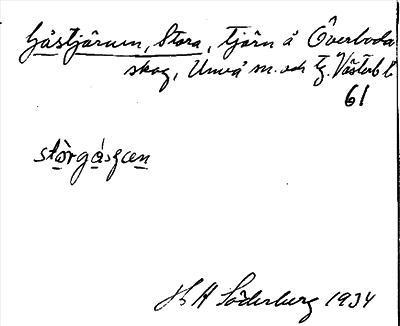 Gåstjärnen, Stora, tjärn å Överboda
skog, Umeå sn. och tg. Västerb. l.
61
stòrgåsʒen
H Söderberg 1934